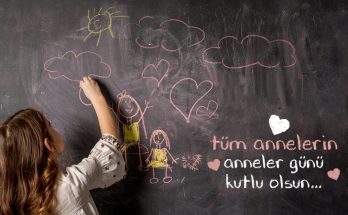 tüm annelerin
anneler günü
kutlu olsun...